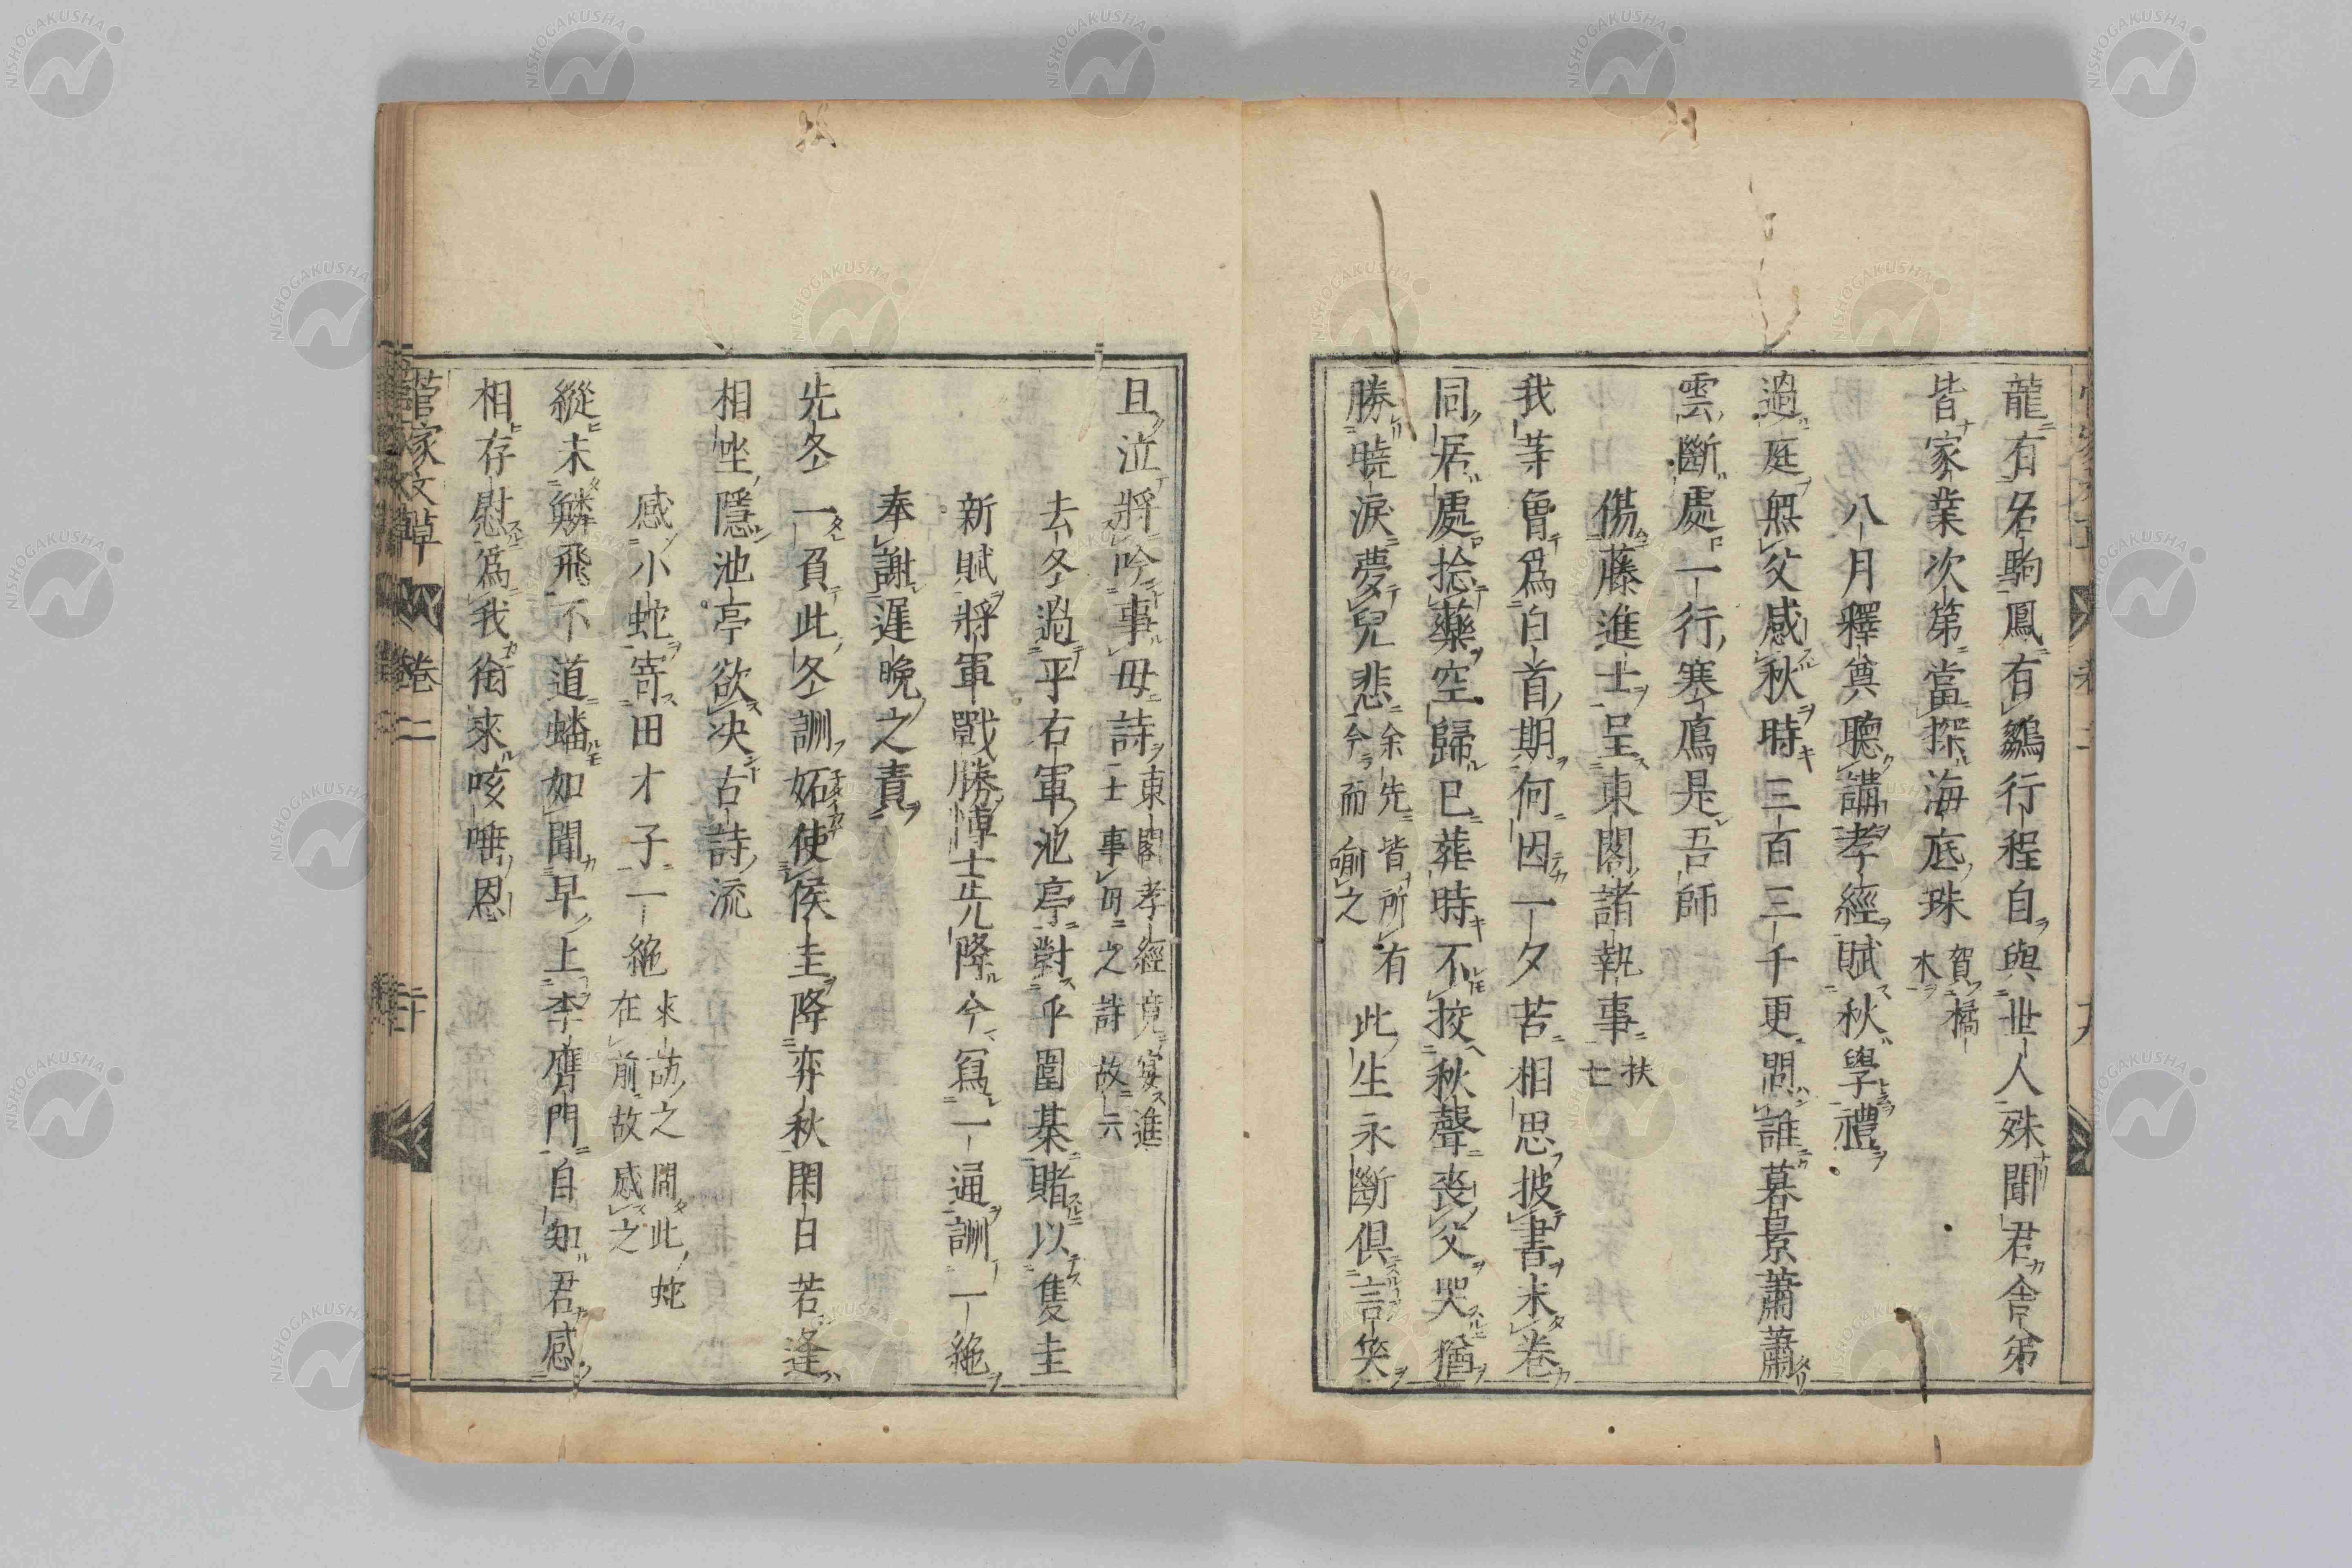 龍有名駒鳳有鷯行程自與世人殊聞君舍弟
皆家業次第當探海底珠 賀橘木
八月釋奠聽講孝經賦秋學禮
過庭無父感秋時三百三千更問誰暮景蕭蕭
雲斷處一行寒鴈是吾師
傷藤進士呈東閣諸執事 扶亡
我等曾爲白首期何因一夕苦相思披書未卷
同居處捻藥空歸已葬時不挍秋聲喪父哭猶
勝曉淚夢兒悲 余先皆所有今而喻之 此生永斷俱言笑
旦泣將吟事母詩 東閣孝經竟宴進士事母之詩故六
去冬過平右軍池亭對乎圍碁賭以隻圭
新賦將軍戰勝博士先降今寫一通詶一絶
奉謝遲晩之責
先冬一負此冬詶妬使侯圭降弈秋閑日若逢
相坐隱池亭欲决古詩流
感小蛇寄田才子一絶 來訪之間此蛇在前故感之
縱未鱗飛不道蟠如聞早上李膺門自知君感
相存慰爲我銜來咳唾恩
菅家文草 卷二 二十
NISHOGAKUSHA